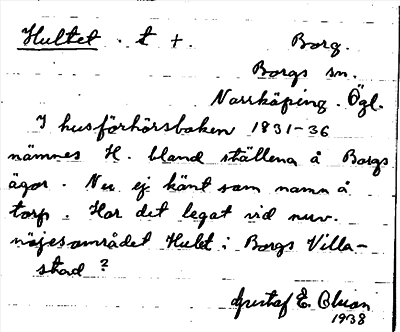 Hultet. t +. Borg.
Borgs sn.
Norrköping. Ögl.
I husförhörsboken 1831-36
nämnes H. bland ställena å Borgs
ägor. Nu ej känt som namn å
torp. Har det legat vid nuv.
nöjesområdet Hulet i Borgs Villa-
stad?
Gustaf E. Olson
1938